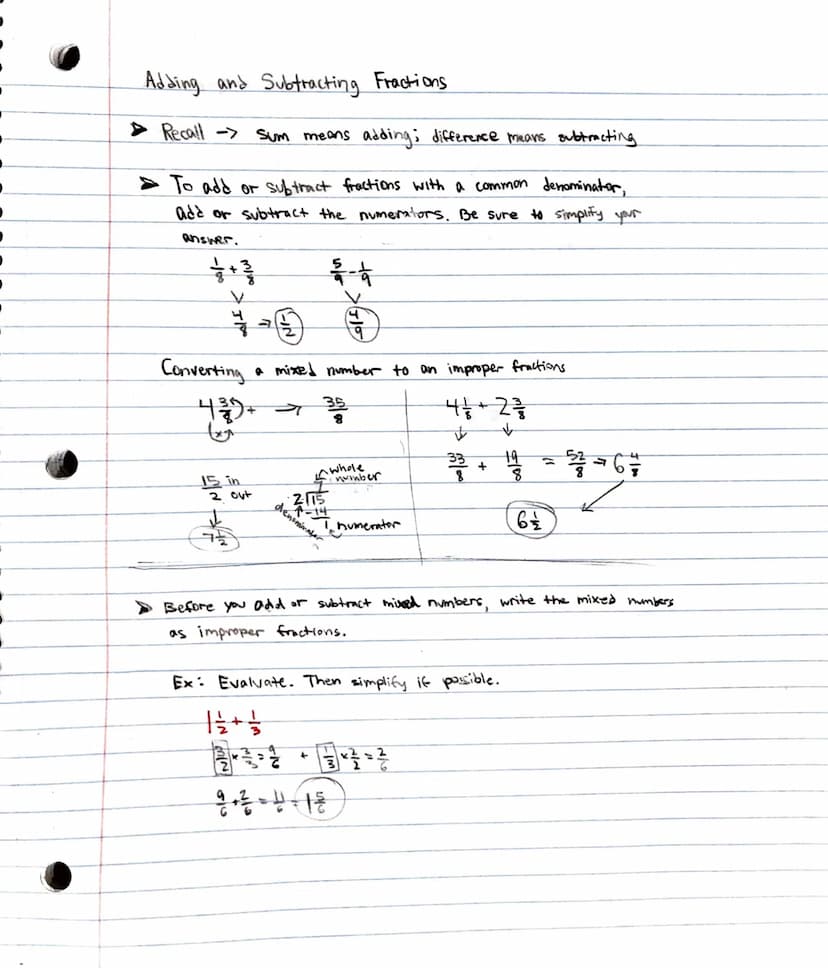 Adding and Subtracting Fractions
➤ Recall → Sum means adding; difference means subtracting
➤ To add or subtract fractions with a common denominator,
add or subtract the numerators. Be sure to simplify your
answer.
1/8 + 3/8
4/8 → 1/2
5/9 - 1/9
4/9
Converting a mixed number to an improper fractions
4 3/8 + → 35/8
x
15/2 in out
↓
7 1/2
whole number
7
2√15
-14
1
denominator
numerator
4 1/8 + 2 3/8
↓ ↓
33/8 + 19/8 = 52/8 → 6 4/8
6 1/2
➤ Before you add or subtract mixed numbers, write the mixed numbers
as improper fractions.
Ex: Evaluate. Then simplify if possible.
1 1/2 + 1/3
3/2 × 3/3 = 9/6 + 1/3 × 2/2 = 2/6
9/6 + 2/6 = 11/6 = 1 5/6